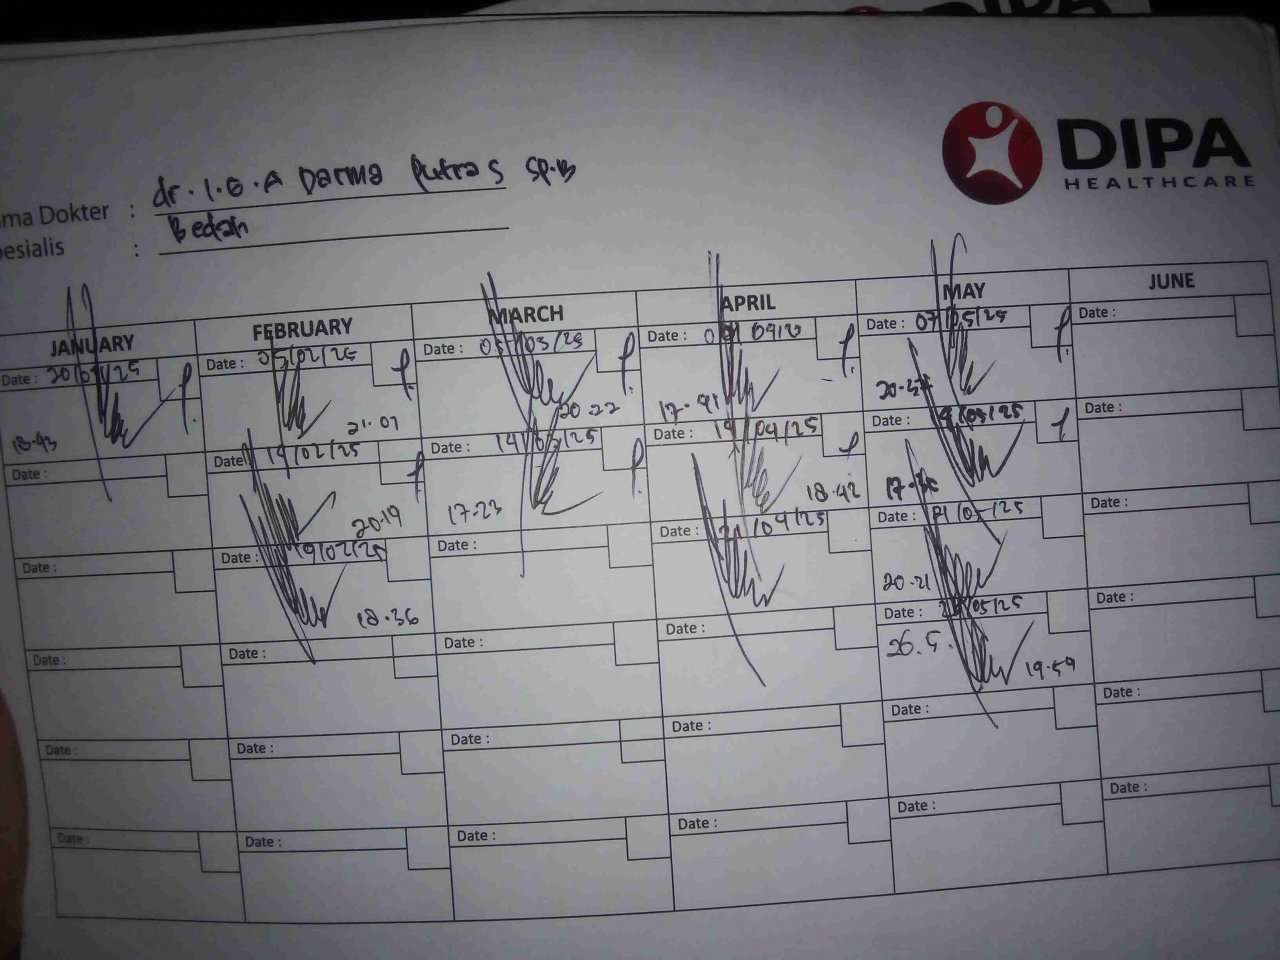 DIPA
DIPA
HEALTHCARE
ma Dokter : dr. I.G.A Darma Putra S Sp.B
esialis : Bedah
JANUARY FEBRUARY MARCH APRIL MAY JUNE
Date : 20/01/25 Date : 05/02/25 Date : 05/03/25 Date : Date : 07/05/25 Date :
18.43 21.07 20.22 17.41 20.37
Date : Date : 14/02/25 Date : 14/03/25 Date : 14/04/25 Date : /05/25 Date :
20.19 17.23 18.42
Date : Date : 19/02/25 Date : Date : 21/04/25 Date : 21/05/25 Date :
18.36 20.21
Date : Date : Date : Date : Date : /05/25 Date :
26.5. 19.59
Date : Date : Date : Date : Date : Date :
Date : Date : Date : Date : Date : Date :